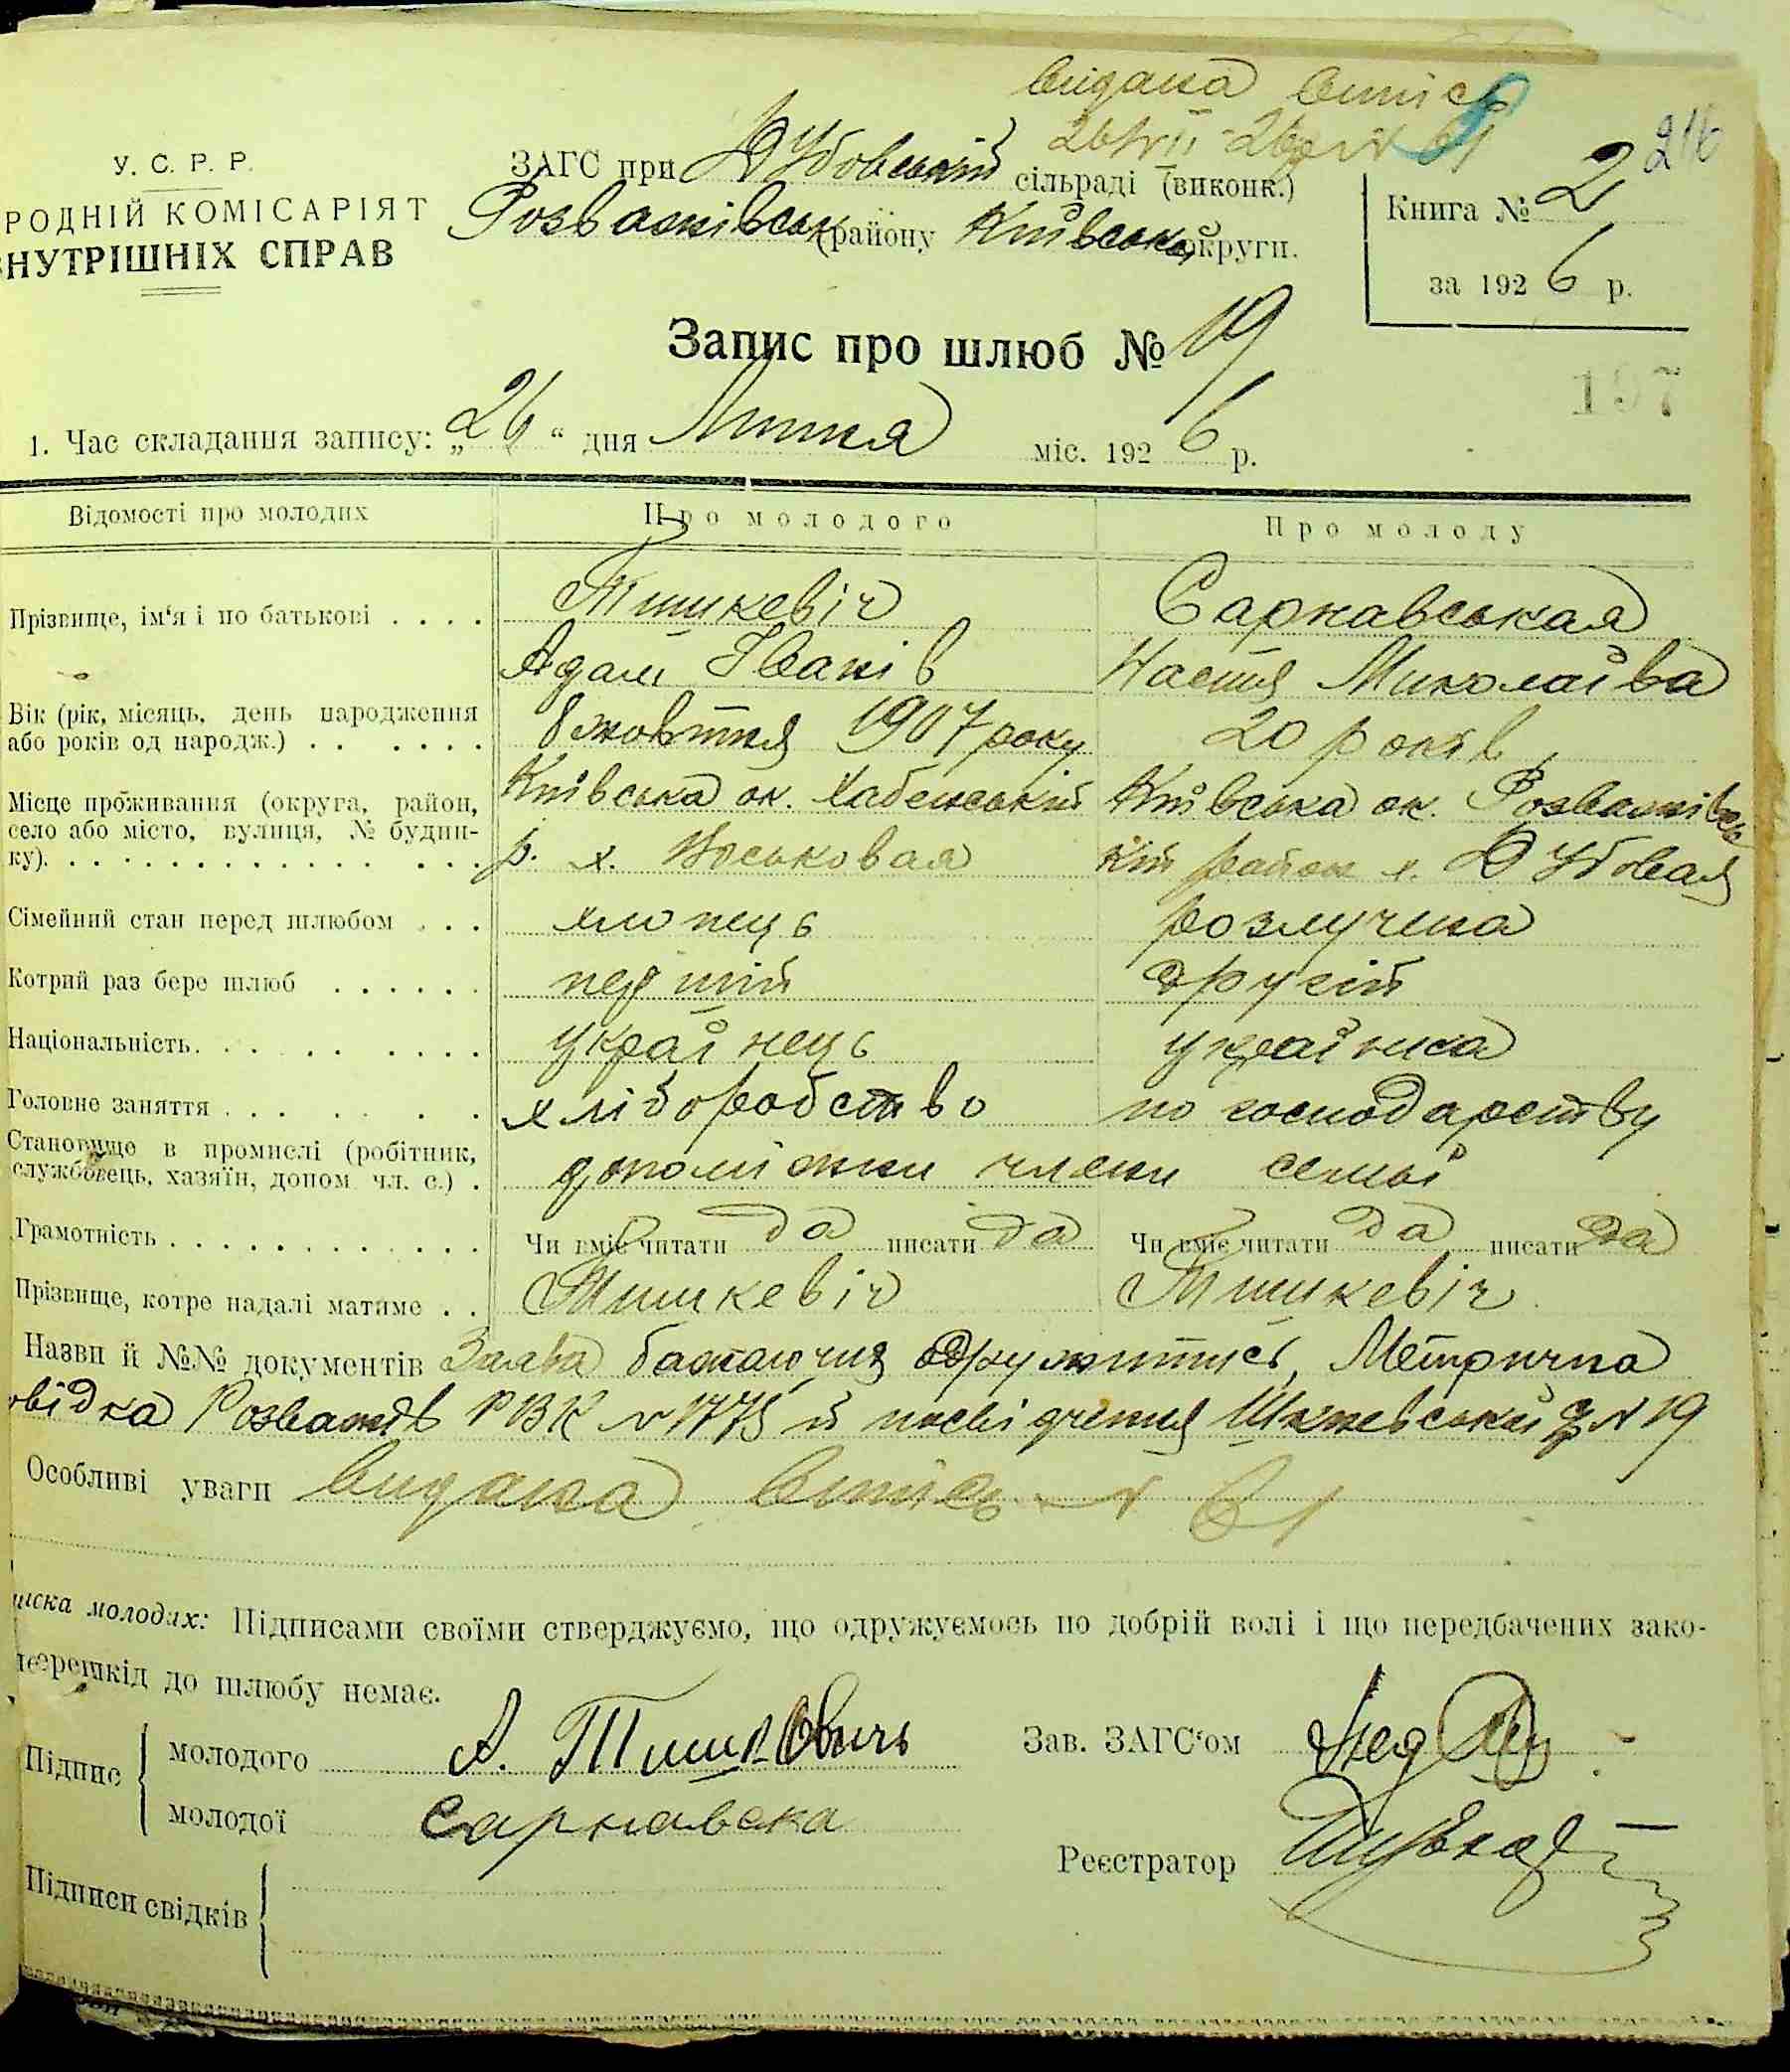 видана виписъ
216
У. С. Р. Р.
РОДНІЙ КОМІСАРІЯТ
НУТРІШНІХ СПРАВ
ЗАГС при Дубовській сільраді (виконк.)
Розважівськ району Київської округи.
Книга № 2
за 1926 р.
Запис про шлюб № 19
197
1. Час складання запису: „26“ дня Липня міс. 1926 р.
Відомості про молодих Про молодого Про молоду
Прізвище, ім‘я і по батькові . . . . Тишкевіч Сарнавськая
Адам Іванів Настя Миколаїва
Вік (рік, місяць, день народження
або років од народж.) . . . . . . 8 жовтня 1907 року 20 років
Місце проживання (округа, район, Київська ок. Хабенський Київська ок. Розважівсь
село або місто, вулиця, № будин-
ку). . . . . . . . . . . . . . . . р. х. Воськовая кий район х. Дубовая
Сімейний стан перед шлюбом . . . хлопець розлучена
Котрий раз бере шлюб . . . . . . перший другій
Національність. . . . . . . . . українець українка
Головне заняття . . . . . . . хліборобство по господарству
Становище в промислі (робітник,
службовець, хазяїн, допом чл. с.) . допоміжни члени семьї
Грамотність . . . . . . . . . . . . Чи вміє читати да писати да Чи вміє читати да писати да
Прізвище, котре надалі матиме . . Тишкевіч Тишкевіч
Назви й №№ документів Заява бажаючих одружитись, Метрична
овідка Розважів РВК № 1775 й посвідчення №19
Особливі уваги видана виписъ № 61
иска молодих: Підписами своїми стверджуємо, що одружуємось по добрій волі і що передбачених зако-
перешкід до шлюбу немає.
Підпис молодого А. Тишковичъ
молодої Сарнавска
Зав. ЗАГС‘ом
Реєстратор
Підписи свідків